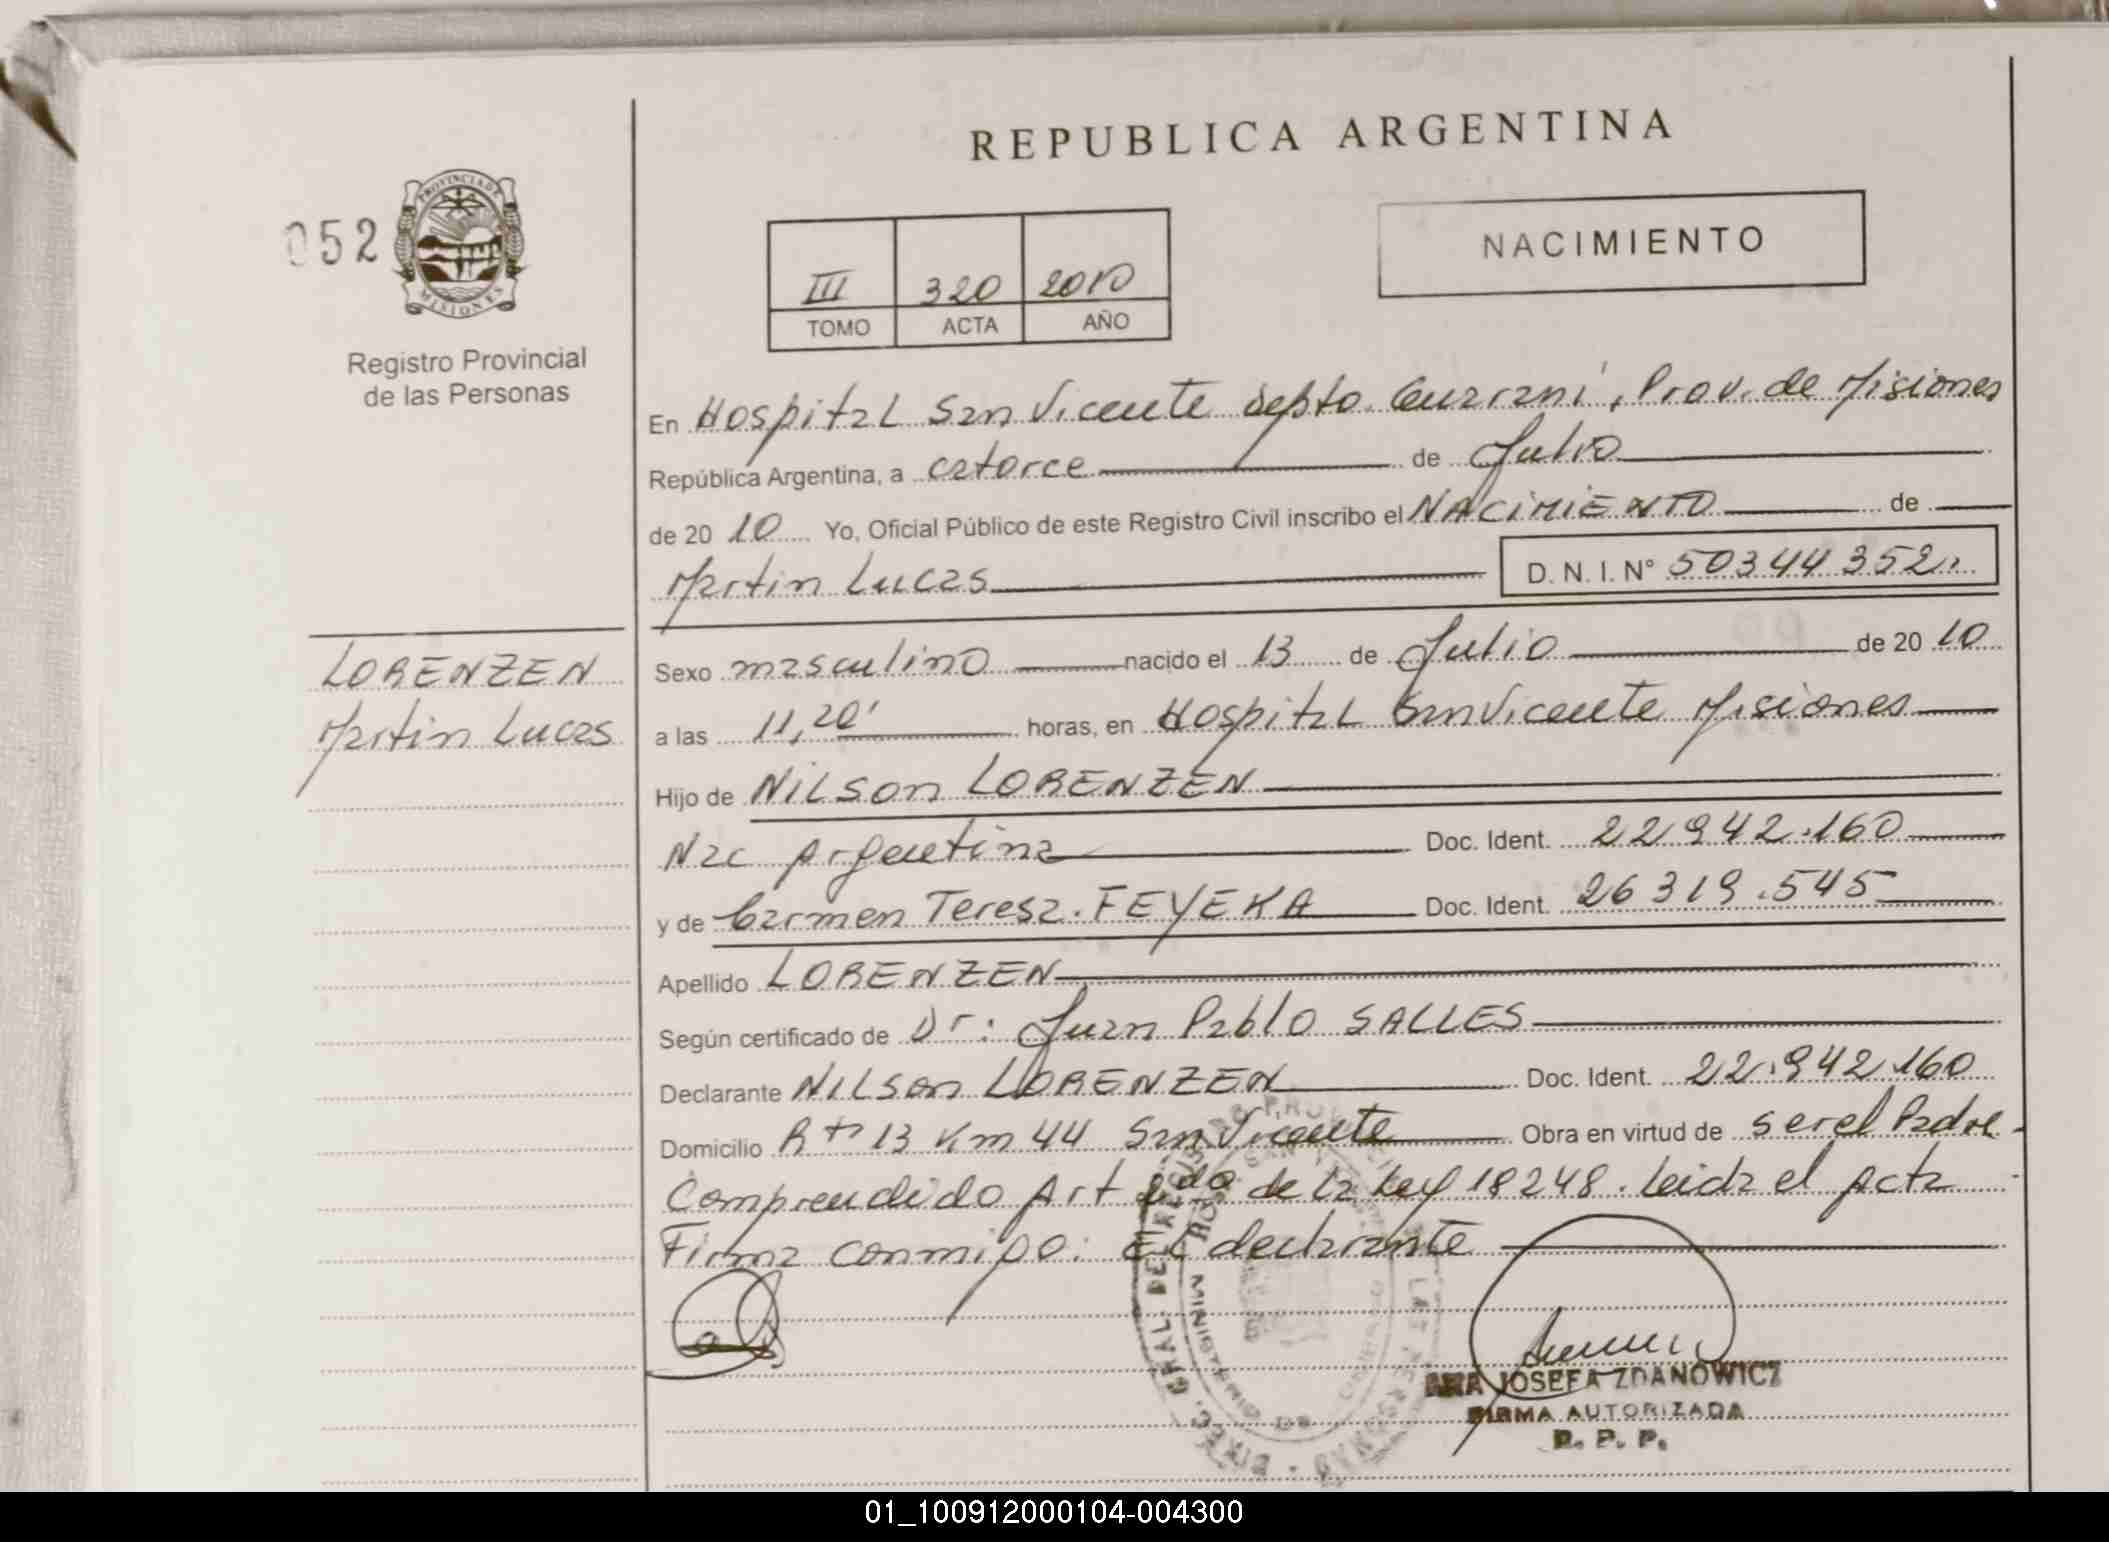 REPUBLICA ARGENTINA
052
PROVINCIA DE
MISIONES
Registro Provincial
de las Personas
III 320 2010
TOMO ACTA AÑO
NACIMIENTO
En Hospital San Vicente Depto. Guaraní, Prov. de Misiones
República Argentina, a catorce de Julio
de 20 10 Yo, Oficial Público de este Registro Civil inscribo el NACIMIENTO de
Martin Lucas D.N.I. N° 50344352
LORENZEN
Martin Lucas
Sexo masculino nacido el 13 de Julio de 20 10
a las 11,20' horas, en Hospital San Vicente Misiones
Hijo de Nilson LORENZEN
Nac Argentina Doc. Ident. 22942.160
y de Carmen Teresa. FEYEKA Doc. Ident. 26319.545
Apellido LORENZEN
Según certificado de Dr: Juan Pablo SALLES
Declarante Nilson LORENZEN Doc. Ident. 22.942.160
Domicilio Rta 13 Km 44 San Vicente Obra en virtud de ser el Padre.
Comprendido Art 2do de la Ley 18248. Leida el Acta
Firma conmigo: el declarante
DIREC. GRAL. DE
MINISTERIO DE GOBIERNO
LAS PERSONAS
ANA JOSEFA ZDANOWICZ
FIRMA AUTORIZADA
R. P. P.
01_100912000104-004300